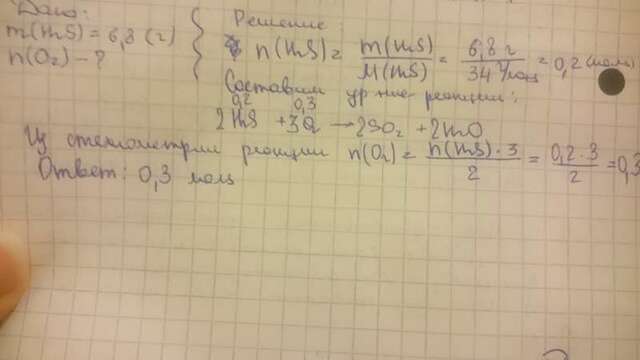 Дано:
m(H₂S) = 6,8 (г)
n(O₂) - ?
Решение:
n(H₂S) = m(H₂S) / M(H₂S) = 6,8 г / 34 г/моль = 0,2 (моль)
Составим ур-ние реакции:
0,2 0,3
2H₂S + 3O₂ → 2SO₂ + 2H₂O
Из стехиометрии реакции n(O₂) = n(H₂S) · 3 / 2 = 0,2 · 3 / 2 = 0,3
Ответ: 0,3 моль